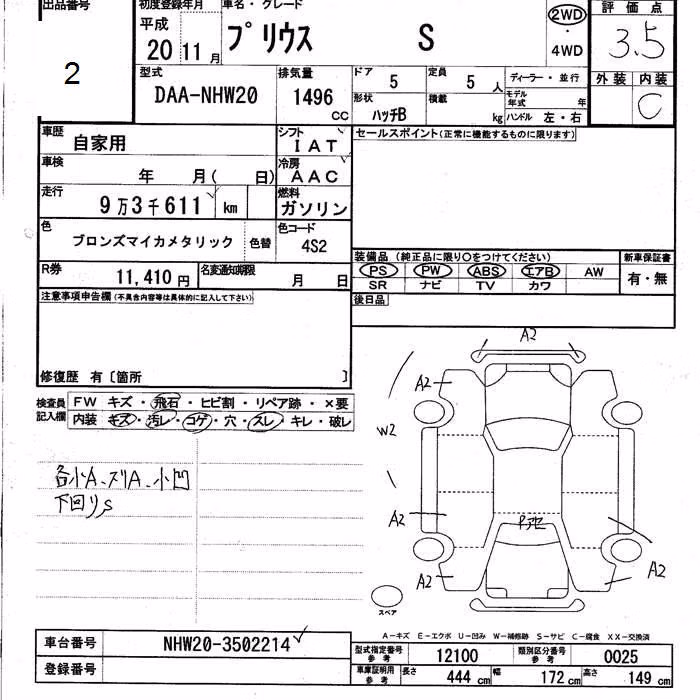 出品番号
2
初度登録年月
平成
20 11 月
車名・グレード
プリウス S
2WD
・
4WD
評価点
3.5
外装 内装
C
型式
DAA-NHW20
排気量
1496
CC
ドア
5
定員
5 人
形状
ハッチB
積載
kg
ディーラー・並行
モデル年式 年
ハンドル 左・右
車歴
自家用
シフト
IAT
セールスポイント(正常に機能するものに限ります)
車検
年 月( 日)
冷房
AAC
走行
9万3千611 km
燃料
ガソリン
色
ブロンズマイカメタリック
色替
色コード
4S2
装備品 (純正品に限り○をつけてください)
新車保証書
PS PW ABS エアB AW
SR ナビ TV カワ
有・無
R券
11,410 円
名変通知期限
月 日
後日品
注意事項申告欄(不具合内容等は具体的に記入して下さい)
修復歴 有〔箇所 〕
検査員記入欄
FW キズ・飛石・ヒビ割・リペア跡・×要
内装 キズ・汚レ・コゲ・穴・スレ・キレ・破レ
各小A、スリA、小凹
下回りS
A2
A2
W2
A2
A2
A2
スペア
A-キズ E-エクボ U-凹み W-補修跡 S-サビ C-腐食 XX-交換済
車台番号
NHW20-3502214
登録番号
型式指定番号 参考
12100
類別区分番号 参考
0025
車庫証明用 参考
長さ 444 cm
幅 172 cm
高さ 149 cm